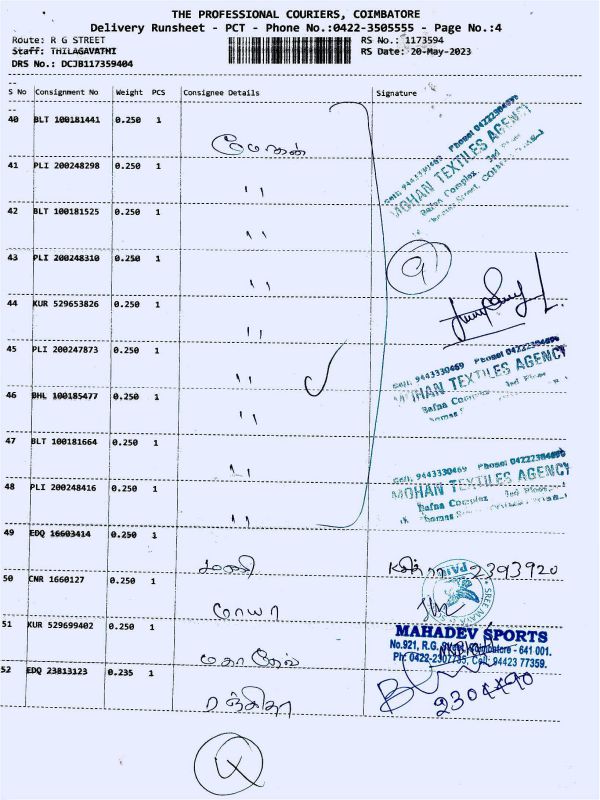 THE PROFESSIONAL COURIERS, COIMBATORE
Delivery Runsheet - PCT - Phone No.:0422-3505555 - Page No.:4
Route: R G STREET
RS No.: 1173594
Staff: THILAGAVATHI
RS Date: 20-May-2023
DRS No.: DCJB117359404
S No Consignment No Weight PCS Consignee Details Signature
40 BLT 100181441 0.250 1 மோகன்
Cell: 9443330469 Phone: 04222304690
MOHAN TEXTILES AGENCY
Bafna Complex 3rd Floor
41 PLI 200248298 0.250 1 ''
42 BLT 100181525 0.250 1 ''
43 PLI 200248310 0.250 1 ''
9
44 KUR 529653826 0.250 1 ''
45 PLI 200247873 0.250 1 ''
Cell: 9443330469 Phone: 04222304690
MOHAN TEXTILES AGENCY
Bafna Complex 3rd Floor
46 BHL 100185477 0.250 1 ''
47 BLT 100181664 0.250 1 ''
Cell: 9443330469 Phone: 04222304690
MOHAN TEXTILES AGENCY
Bafna Complex 3rd Floor
Thomas Street
48 PLI 200248416 0.250 1 ''
49 EDQ 16603414 0.250 1 2393920
50 CNR 1660127 0.250 1 மாயா
51 KUR 529699402 0.250 1 மகாதேவ்
MAHADEV SPORTS
No.921, R.G. Street, Coimbatore - 641 001.
Ph: 0422-2307735, Cell: 94423 77359.
52 EDQ 23813123 0.235 1 ரஞ்சிதா
2304490